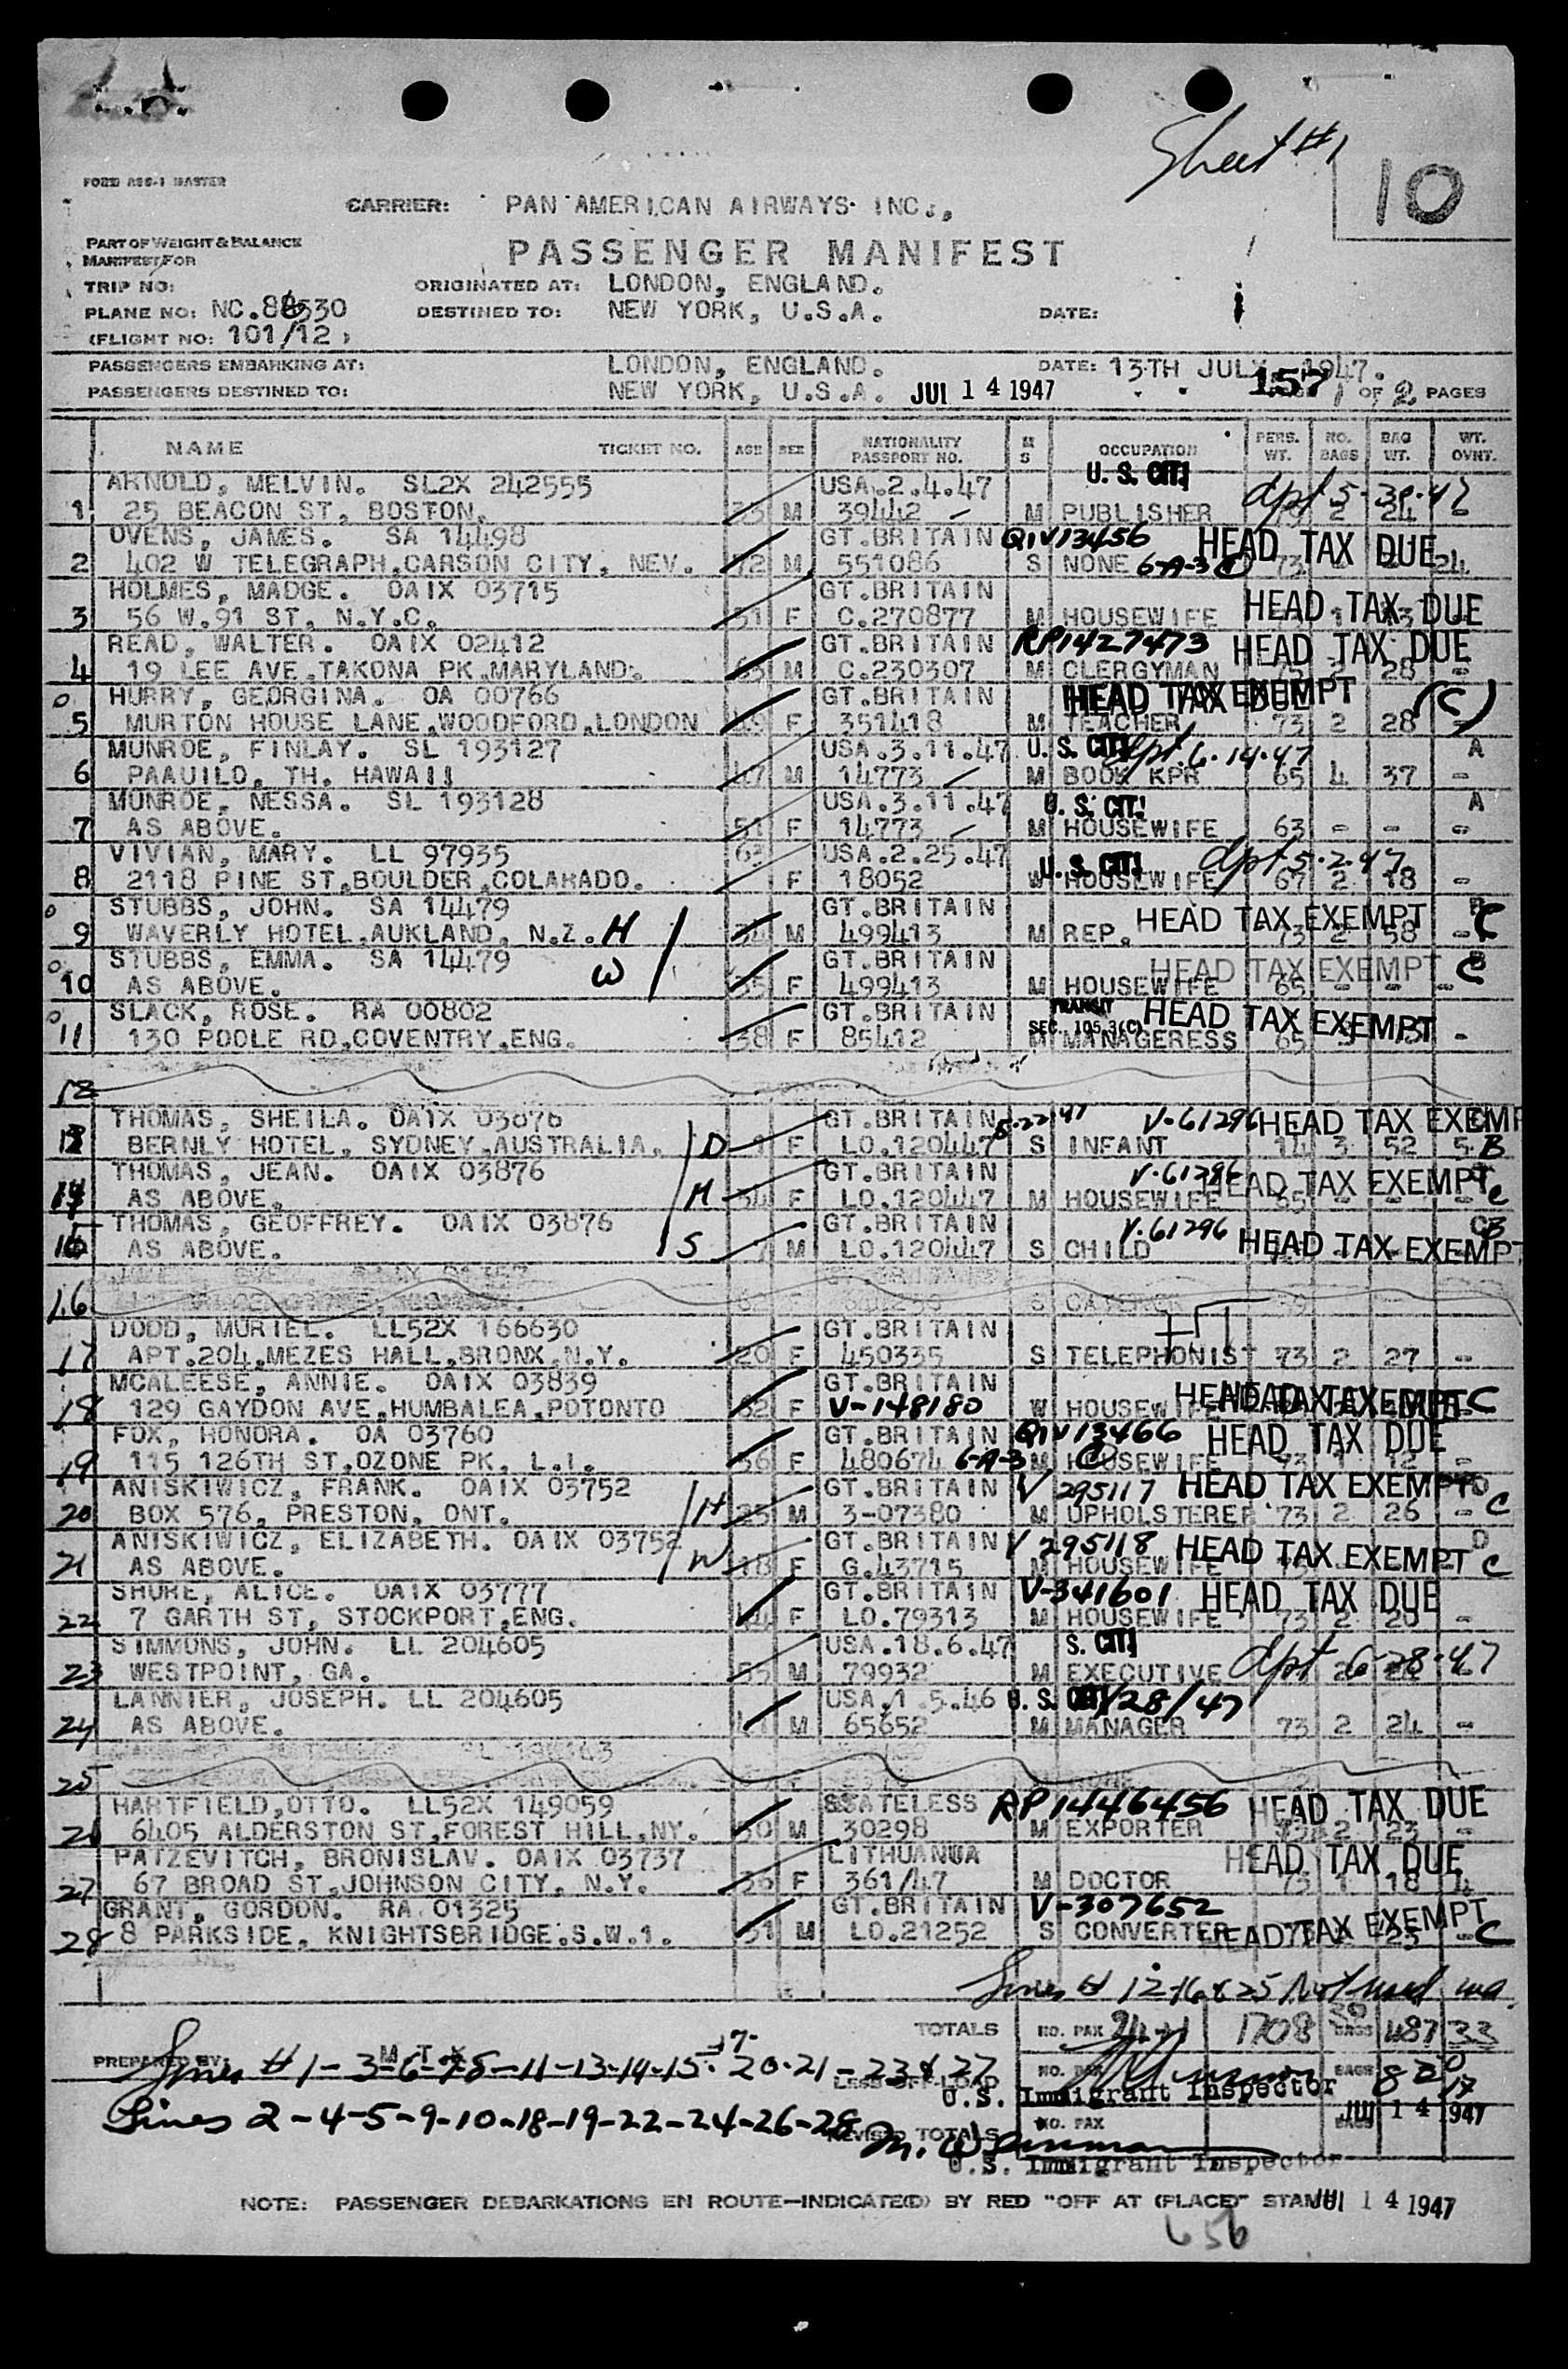 Sheet #1
10
FORM ASC-1 MASTER
CARRIER: PAN AMERICAN AIRWAYS INC.,
PART OF WEIGHT & BALANCE
MANIFEST FOR
PASSENGER MANIFEST
TRIP NO: ORIGINATED AT: LONDON, ENGLAND.
PLANE NO: NC.88530 DESTINED TO: NEW YORK, U.S.A. DATE:
(FLIGHT NO: 101/12)
PASSENGERS EMBARKING AT: LONDON, ENGLAND. DATE: 13TH JULY, 1947.
PASSENGERS DESTINED TO: NEW YORK, U.S.A. JUL 14 1947 157 1 OF 2 PAGES
NAME TICKET NO. AGE SEX NATIONALITY PASSPORT NO. M S OCCUPATION PERS. WT. NO. BAGS BAG WT. WT. OVNT.
ARNOLD, MELVIN. SL2X 242555 USA.2.4.47 U. S. CIT. dpt 5-30-47
1 25 BEACON ST, BOSTON. M 39442 M PUBLISHER 2 24 -
OVENS, JAMES. SA 14498 GT.BRITAIN QIV13456 HEAD TAX DUE
2 402 W TELEGRAPH.CARSON CITY, NEV. M 551086 S NONE 6-A-3 73 24
HOLMES, MADGE. OAIX 03715 GT.BRITAIN HEAD TAX DUE
3 56 W.91 ST. N.Y.C. 31 F C.270877 M HOUSEWIFE
READ, WALTER. OAIX 02412 GT.BRITAIN RP1427473 HEAD TAX DUE
4 19 LEE AVE.TAKONA PK.MARYLAND. 63 M C.230307 M CLERGYMAN 28 -
0 HURRY, GEORGINA. OA 00766 GT.BRITAIN HEAD TAX EXEMPT (C)
5 MURTON HOUSE LANE,WOODFORD,LONDON 49 F 351418 M TEACHER 73 2 28 -
MUNROE, FINLAY. SL 193127 USA.3.11.47 U. S. CIT. dpt. 6-14-47 A
6 PAAUILO, TH. HAWAII 47 M 14773 M BOOK KPR 65 4 37 -
MUNROE, NESSA. SL 193128 USA.3.11.47 U. S. CIT. A
7 AS ABOVE. 51 F 14773 M HOUSEWIFE 63 - - -
VIVIAN, MARY. LL 97935 63 USA.2.25.47 U. S. CIT. dpt-5-2-47
8 2118 PINE ST,BOULDER,COLARADO. F 18052 W HOUSEWIFE 67 2 18 -
0 STUBBS, JOHN. SA 14479 GT.BRITAIN HEAD TAX EXEMPT C
9 WAVERLY HOTEL.AUKLAND, N.Z. H 34 M 499413 M REP. 73 2 58 -
0 STUBBS, EMMA. SA 14479 W GT.BRITAIN HEAD TAX EXEMPT C
10 AS ABOVE. 35 F 499413 M HOUSEWIFE 65 - - -
0 SLACK, ROSE. RA 00802 GT.BRITAIN TRANSIT SEC. 105.3(C) HEAD TAX EXEMPT
11 130 POOLE RD,COVENTRY,ENG. 38 F 85412 M MANAGERESS 65 -
12
THOMAS, SHEILA. OAIX 03876 GT.BRITAIN 5-22-47 V-61296 HEAD TAX EXEMP
13 BERNLY HOTEL, SYDNEY,AUSTRALIA. D F LO.120447 S INFANT 14 3 52 5 B
THOMAS, JEAN. OAIX 03876 GT.BRITAIN V-61296 HEAD TAX EXEMPT
14 AS ABOVE. M 34 F LO.120447 M HOUSEWIFE - - - C
THOMAS, GEOFFREY. OAIX 03876 GT.BRITAIN V-61296 HEAD TAX EXEMPT
15 AS ABOVE. S 7 M LO.120447 S CHILD
16
DODD, MURIEL. LL52X 166630 GT.BRITAIN
17 APT.204,MEZES HALL,BRONX,N.Y. 20 F 450335 S TELEPHONIST 73 2 27 -
MCALEESE, ANNIE. OAIX 03839 GT.BRITAIN HEAD TAX EXEMPT C
18 129 GAYDON AVE,HUMBALEA,POTONTO 62 F V-148180 W HOUSEWIFE
FOX, HONORA. OA 03760 GT.BRITAIN QIV13466 HEAD TAX DUE
19 115 126TH ST.OZONE PK, L.I. 36 F 480674 6-A-3 M HOUSEWIFE 73 1 12 -
ANISKIWICZ, FRANK. OAIX 03752 GT.BRITAIN V 295117 HEAD TAX EXEMPT D
20 BOX 576, PRESTON, ONT. H 25 M 3-07380 M UPHOLSTERER 73 2 26 - C
ANISKIWICZ, ELIZABETH. OAIX 03752 GT.BRITAIN V 295118 HEAD TAX EXEMPT D
21 AS ABOVE. W 18 F G.43715 M HOUSEWIFE C
SHORE, ALICE. OAIX 03777 GT.BRITAIN V-341601 HEAD TAX DUE
22 7 GARTH ST, STOCKPORT,ENG. 44 F LO.79313 M HOUSEWIFE 73 2 20 -
SIMMONS, JOHN. LL 204605 USA.18.6.47 S. CIT.
23 WESTPOINT, GA. 55 M 79932 M EXECUTIVE dpt 6-28-47
LANNIER, JOSEPH. LL 204605 USA.1.5.46 U. S. CIT. /28/47
24 AS ABOVE. 41 M 65652 M MANAGER 73 2 24 -
25
HARTFIELD,OTTO. LL52X 149059 STATELESS RP1446456 HEAD TAX DUE
26 6405 ALDERSTON ST,FOREST HILL,NY. 50 M 30298 M EXPORTER 73 2 23 -
PATZEVITCH, BRONISLAV. OAIX 03737 LITHUANUA HEAD TAX DUE
27 67 BROAD ST,JOHNSON CITY, N.Y. 36 F 361/47 M DOCTOR 73 1 18 4
GRANT, GORDON. RA 01325 GT.BRITAIN V-307652
28 8 PARKSIDE, KNIGHTSBRIDGE.S.W.1. 31 M LO.21252 S CONVERTER HEAD TAX EXEMPT C
Lines # 12-16 & 25 Not used
TOTALS NO. PAX 24+1 1708 BAGS 487 33
PREPARED BY: Lines #1-3-6-7-8-11-13-14-15-17-20-21-23 & 27
LESS OFF-LOAD U.S. Immigrant Inspector
Lines 2-4-5-9-10-18-19-22-24-26-28
JUL 14 1947
REVISED TOTALS NO. PAX BAGS
U.S. Immigrant Inspector
NOTE: PASSENGER DEBARKATIONS EN ROUTE—INDICATE(D) BY RED "OFF AT (PLACE)" STAMP
JUL 14 1947
656